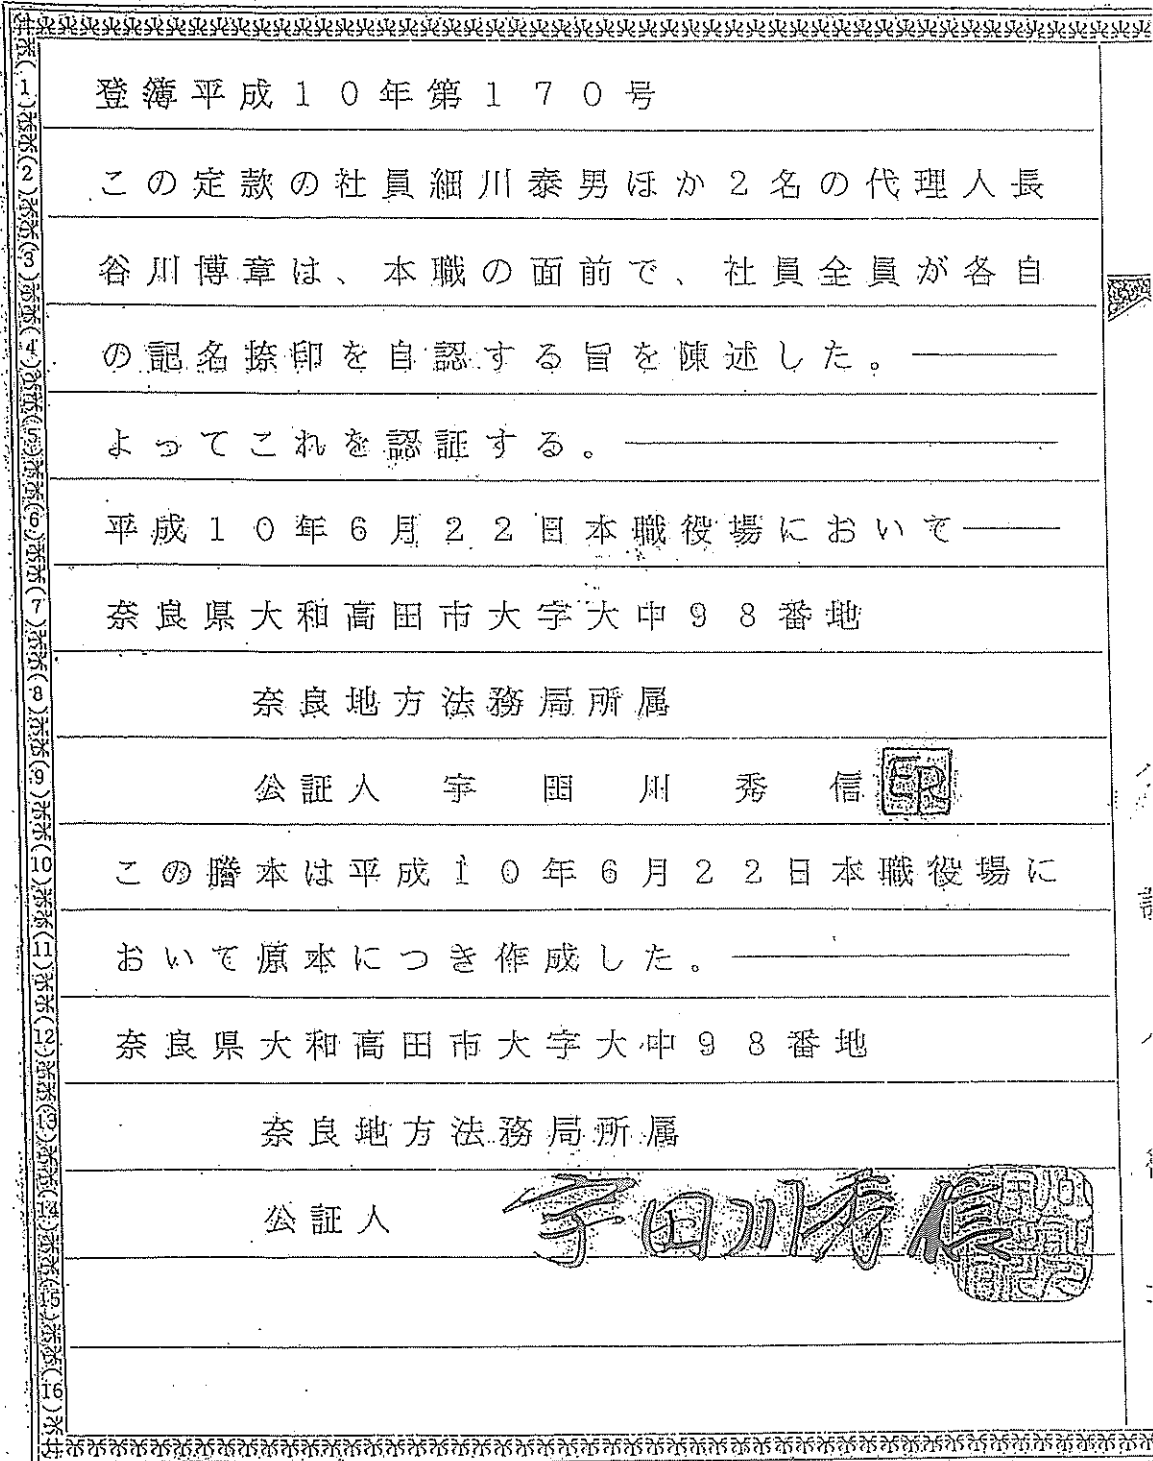 登簿平成10年第170号
この定款の社員細川泰男ほか2名の代理人長
谷川博章は、本職の面前で、社員全員が各自
の記名捺印を自認する旨を陳述した。
よってこれを認証する。
平成10年6月22日本職役場において
奈良県大和高田市大字大中98番地
奈良地方法務局所属
公証人 宇田川秀信 印
この謄本は平成10年6月22日本職役場に
おいて原本につき作成した。
奈良県大和高田市大字大中98番地
奈良地方法務局所属
公証人 宇田川秀信
(1)
(2)
(3)
(4)
(5)
(6)
(7)
(8)
(9)
(10)
(11)
(12)
(13)
(14)
(15)
(16)